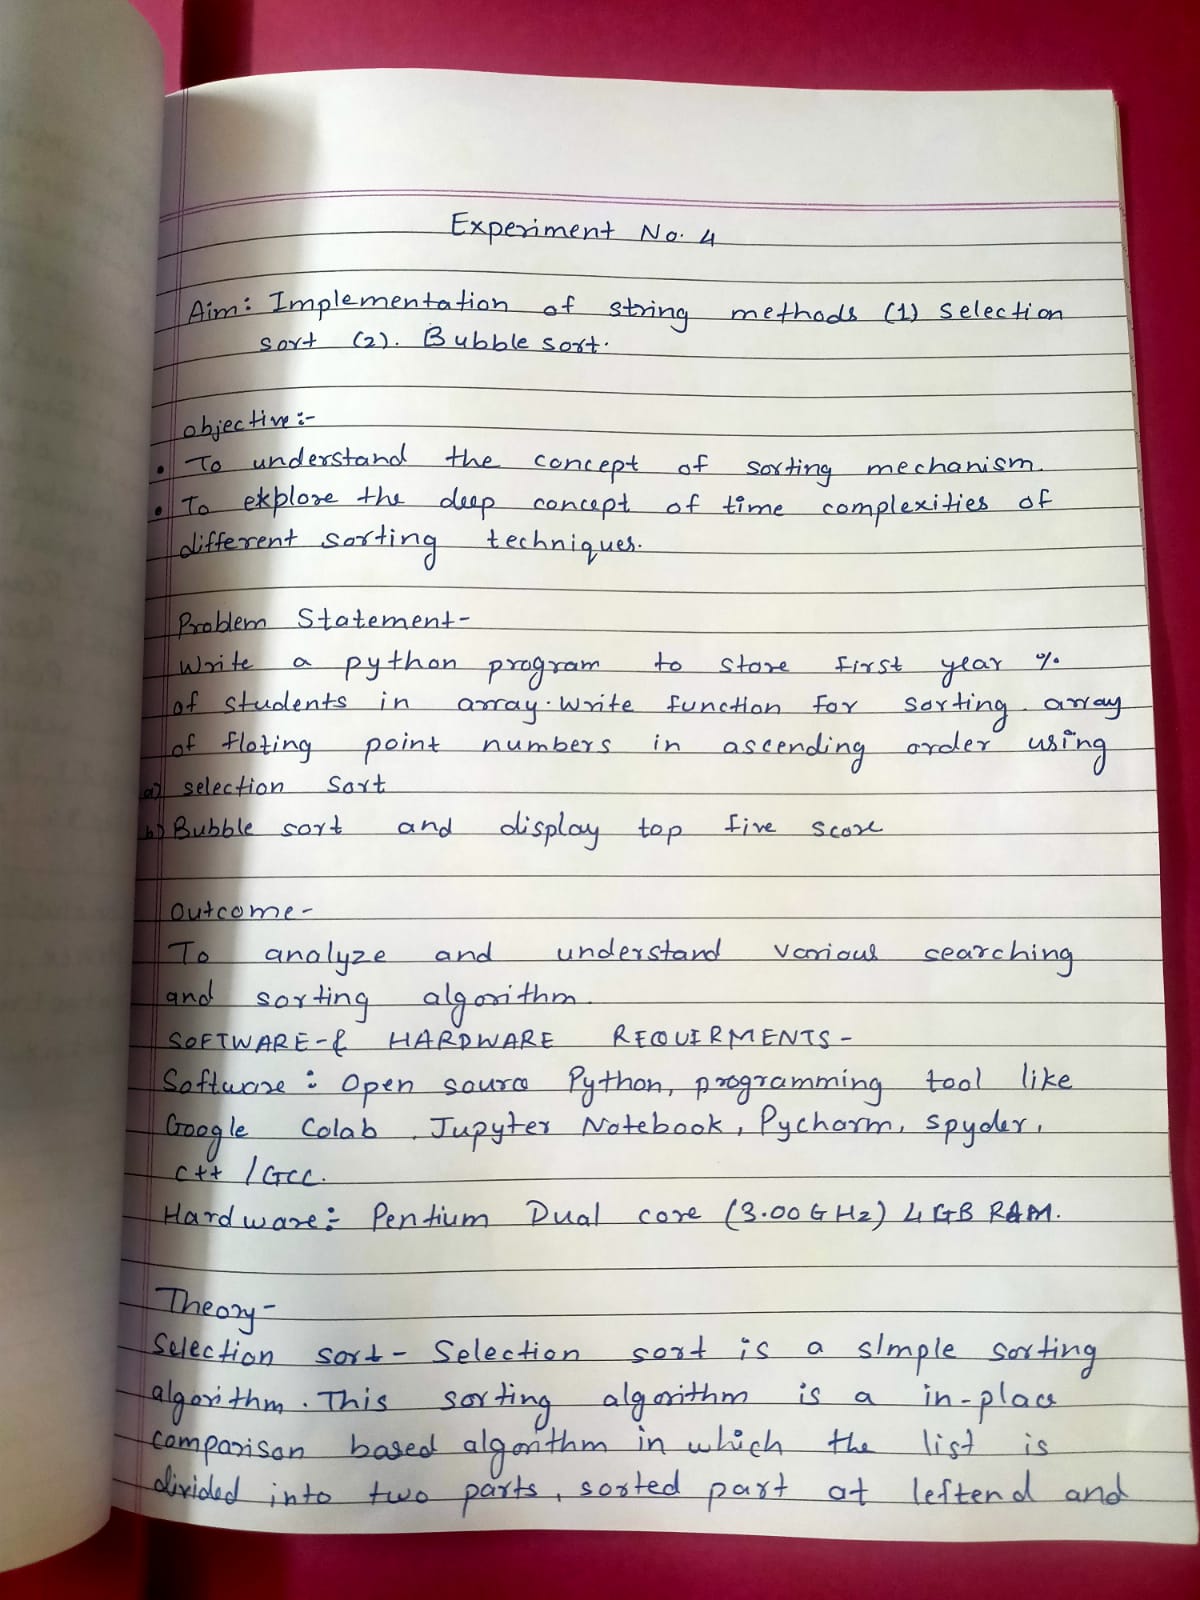 Experiment No. 4
Aim: Implementation of string methods (1) Selection
sort (2). Bubble sort.
objective:-
• To understand the concept of sorting mechanism.
• To explore the deep concept of time complexities of
different sorting techniques.
Problem Statement-
Write a python program to store first year %
of students in array. Write function for sorting array
of floting point numbers in ascending order using
a) selection Sort
b) Bubble sort and display top five score
Outcome-
To analyze and understand various searching
and sorting algorithm.
SOFTWARE-& HARDWARE REQUIRMENTS-
Software: Open source Python, programming tool like
Google Colab, Jupyter Notebook, Pycharm, spyder,
C++ / GCC.
Hardware: Pentium Dual core (3.00 GHz) 4 GB RAM.
Theory-
Selection sort- Selection sort is a simple sorting
algorithm. This sorting algorithm is a in-place
comparison based algorithm in which the list is
divided into two parts, sorted part at leftend and